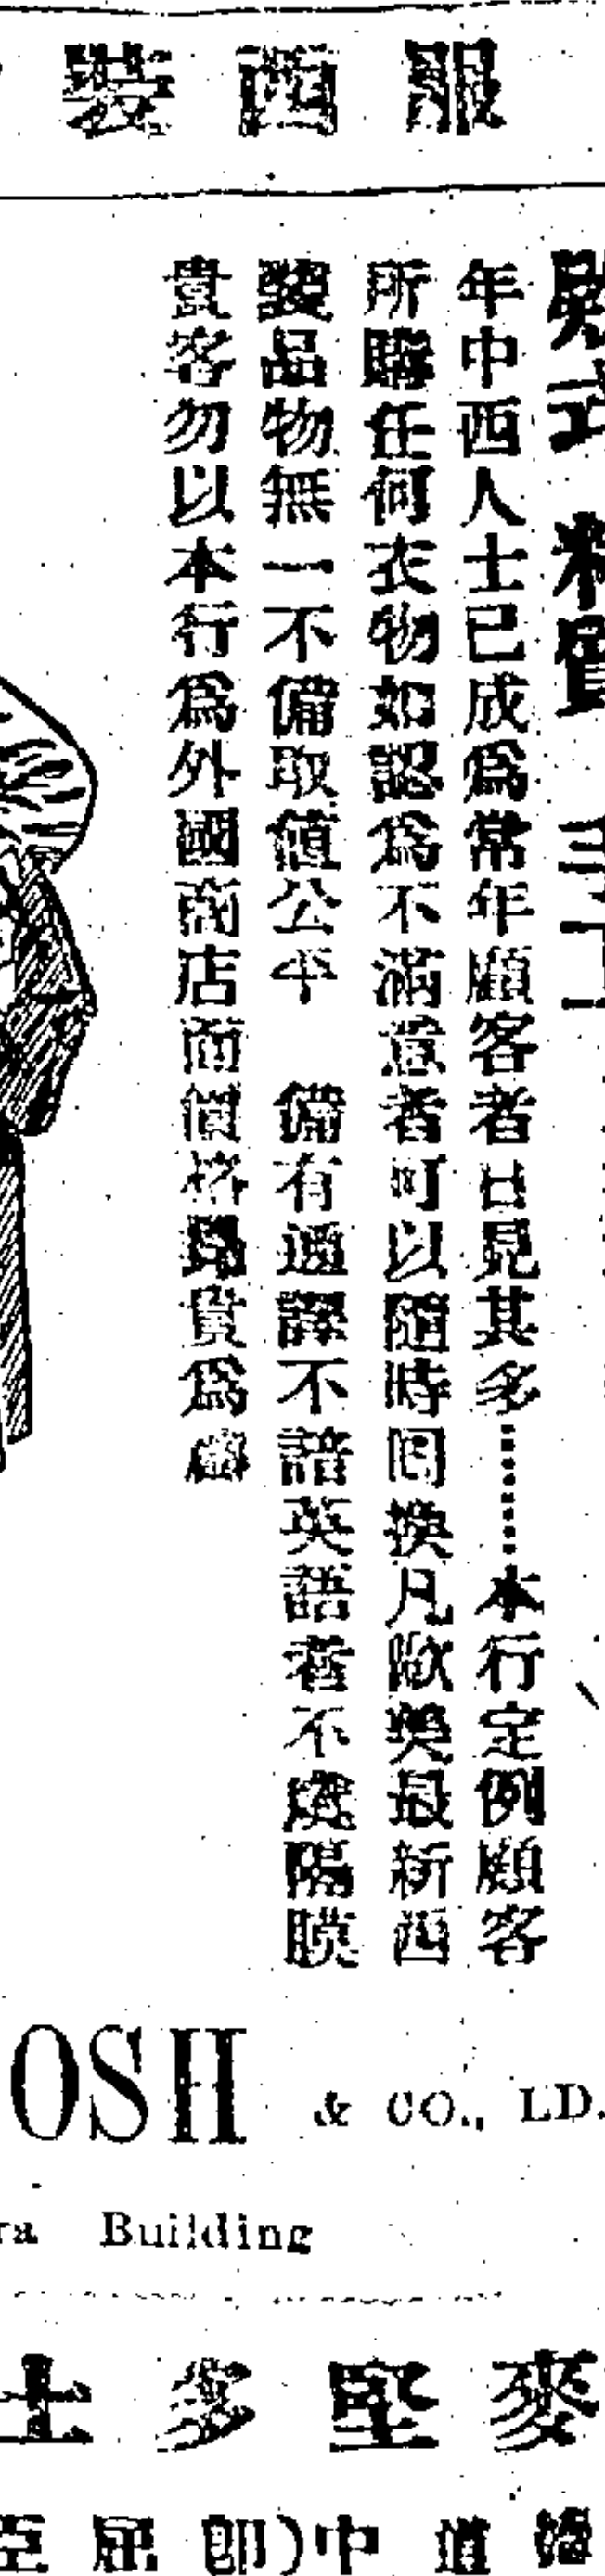 服西裝
年中西人士已成爲常年顧客者日見其多………本行定例顧客
所購任何衣物如認爲不滿意者可以隨時囘換凡歐美最新西
裝品物無一不備取値公平　備有通譯不諳英語者不處隔膜
貴客勿以本行爲外國商店而價格見貴爲慮
OSH & CO., LD.
ra Building
麥堅多士
道中(即屈臣